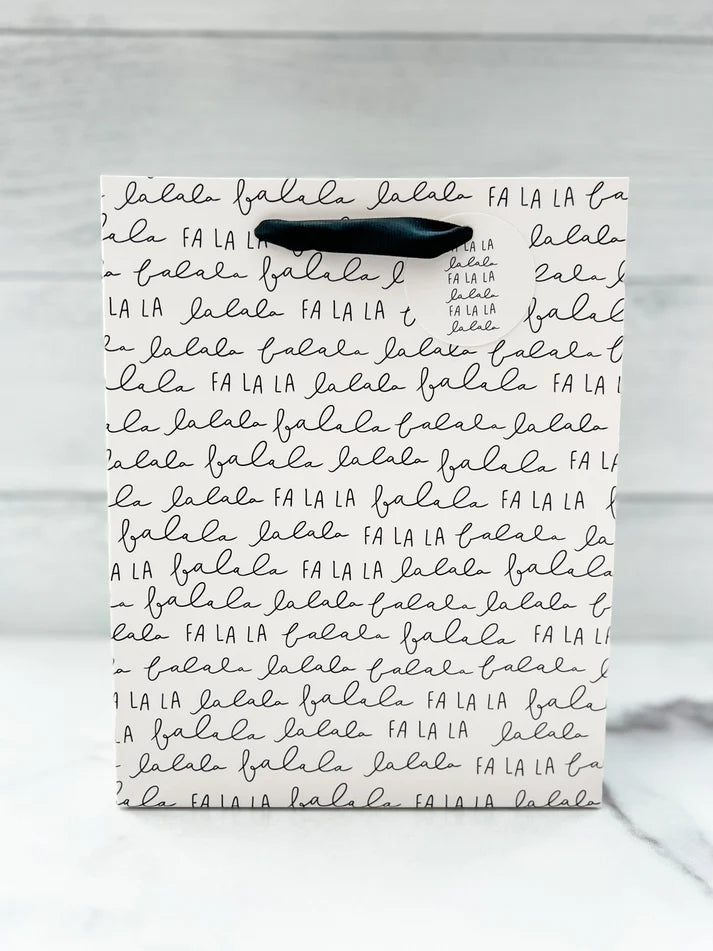 lalala falala lalala FA LA LA fa
ala FA LA LA lalala
falala falala
LA LA lalala FA LA LA fala
lalala falala lalala falala
lala FA LA LA lalala falala FA LA
ala lalala falala falala lalala
alala falala lalala falala FA LA
la lalala FA LA LA falala FA LA LA
falala lalala FA LA LA falala la
A LA falala FA LA LA lalala falala
falala lalala falala lalala
lala FA LA LA falala falala FA LA
falala lalala falala falala
LA LA lalala falala FA LA LA fala
LA falala lalala FA LA LA lalala
lalala falala lalala FA LA LA fa
ala FA LA LA falala FA LA LA lalala
LA LA
lalala
FA LA LA
lalala
FA LA LA
lalala